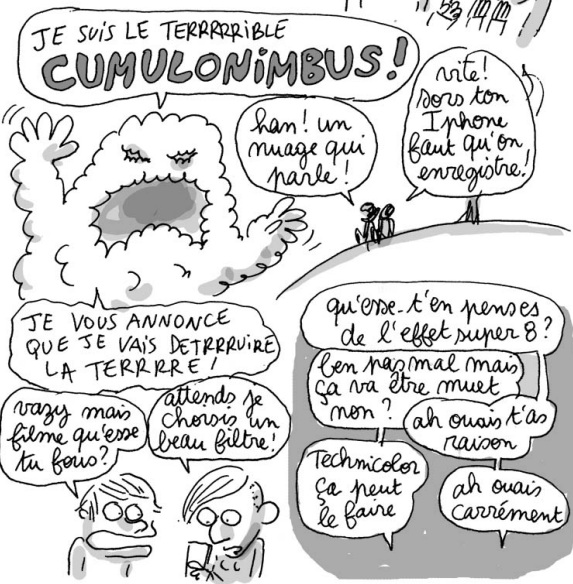 JE SUIS LE TERRRRRIBLE
CUMULONIMBUS !
han ! un
nuage qui
parle !
vite !
sors ton
Iphone
faut qu'on
enregistre !
JE VOUS ANNONCE
QUE JE VAIS DETRRRUIRE
LA TERRRRE !
vazy mais
filme qu'esse
tu fous ?
attends je
choisis un
beau filtre !
qu'esse-t'en penses
de l'effet super 8 ?
ben pas mal mais
ça va être muet
non ?
ah ouais t'as
raison
Technicolor
ça peut
le faire
ah ouais
carrément